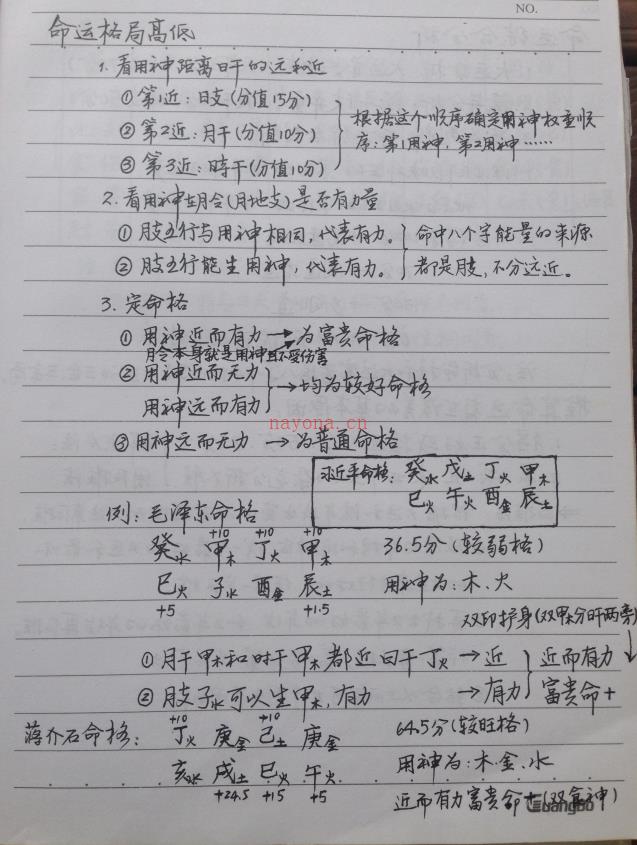 NO.
命运格局高低
1. 看用神距离日干的远和近
① 第1近：日支(分值15分)
② 第2近：月干(分值10分)
③ 第3近：时干(分值10分)
根据这个顺序确定用神权重顺
序：第1用神，第2用神……
2. 看用神在月令(月地支)是否有力量
① 月支五行与用神相同，代表有力。
② 月支五行能生用神，代表有力。
命中八个字能量的来源
都是月支，不分远近。
3. 定命格
① 用神近而有力→为富贵命格
月令本身就是用神且不受伤害
② 用神近而无力
用神远而有力
→均为较好命格
nayona.cn
③ 用神远而无力 →为普通命格
习近平命格： 癸水 戊土 丁火 甲木
巳火 午火 酉金 辰土
例：毛泽东命格
+10 +10 +10
癸水 甲木 丁火 甲木
36.5分(较弱格)
巳火 子水 酉金 辰土
用神为：木、火
+5 +1.5
双印护身(双甲木分日干两旁)
① 月干甲木和时干甲木都近日干丁火→近
② 月支子水可以生甲木，有力 →有力
近而有力
富贵命+
蒋介石命格：
+10 +10
丁火 庚金 己土 庚金
64.5分(较旺格)
亥水 戌土 巳火 午火
用神为：木、金、水
+24.5 +15 +5
近而有力富贵命+(双食神)
Guangbo